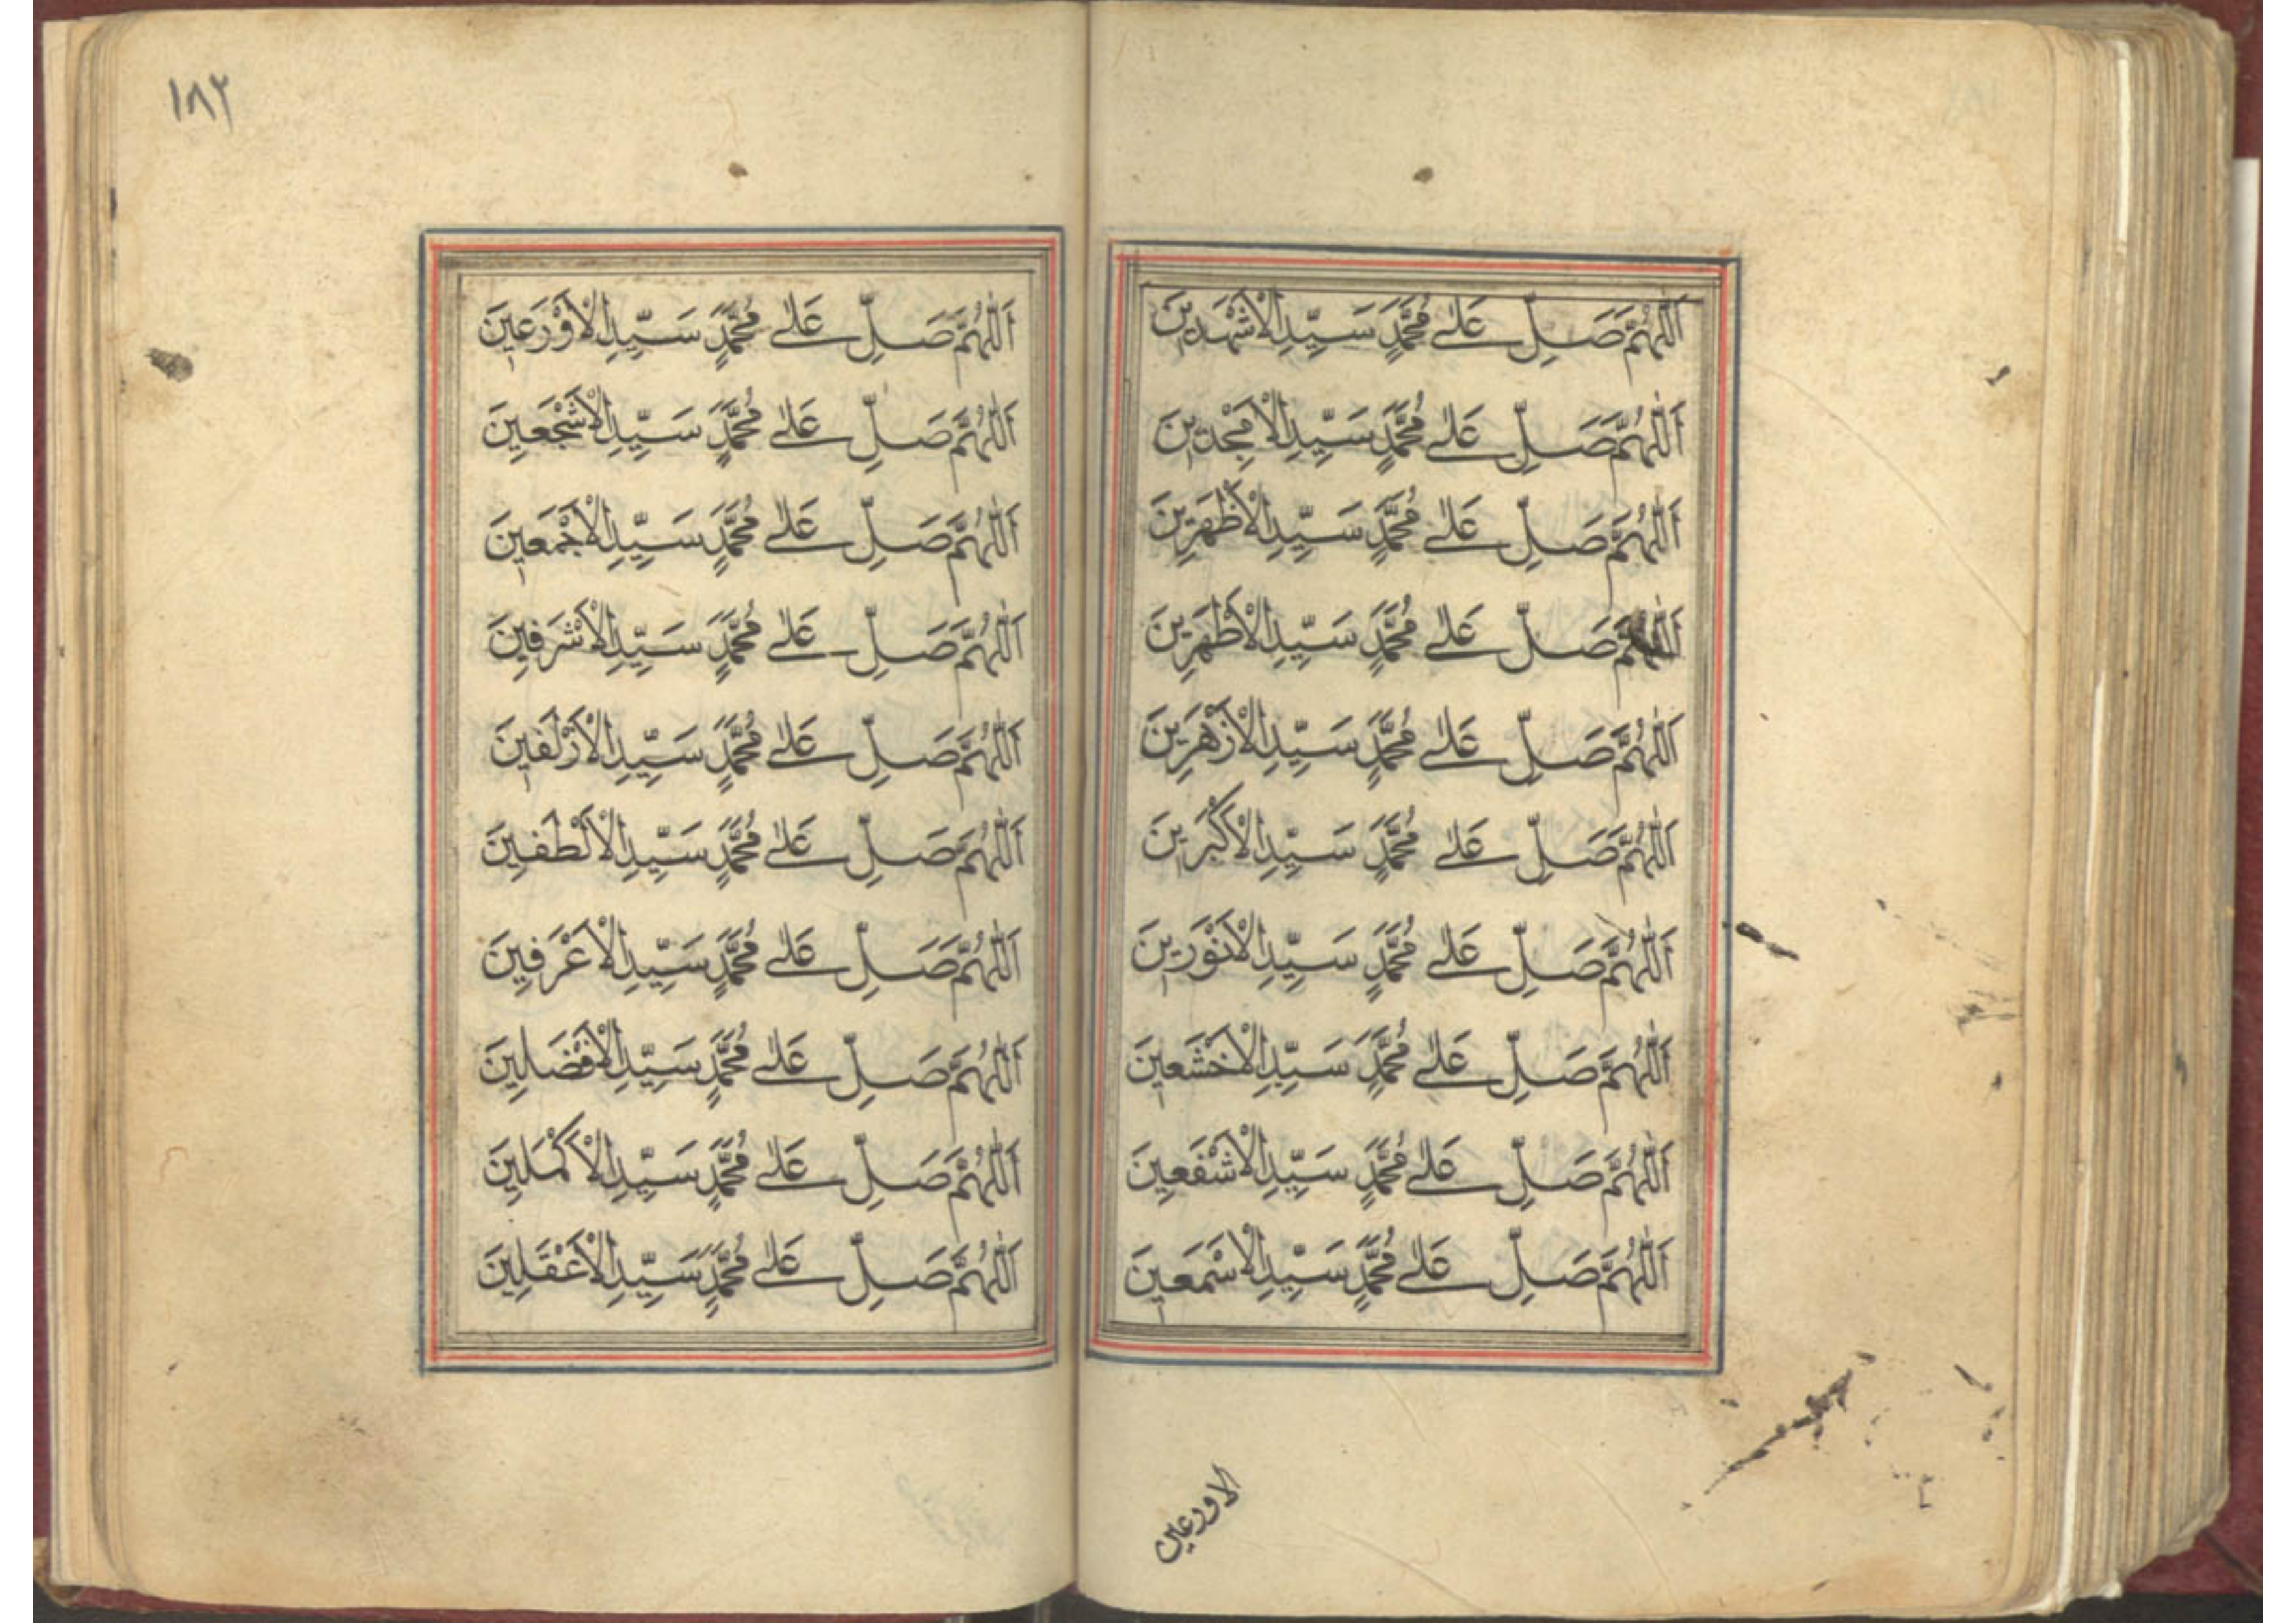 اَللّٰهُمَّ صَلِّ عَلٰى مُحَمَّدٍ سَيِّدِ الْاَشْهَدِينَ
اَللّٰهُمَّ صَلِّ عَلٰى مُحَمَّدٍ سَيِّدِ الْاَمْجَدِينَ
اَللّٰهُمَّ صَلِّ عَلٰى مُحَمَّدٍ سَيِّدِ الْاَظْهَرِينَ
اَللّٰهُمَّ صَلِّ عَلٰى مُحَمَّدٍ سَيِّدِ الْاَطْهَرِينَ
اَللّٰهُمَّ صَلِّ عَلٰى مُحَمَّدٍ سَيِّدِ الْاَزْهَرِينَ
اَللّٰهُمَّ صَلِّ عَلٰى مُحَمَّدٍ سَيِّدِ الْاَكْبَرِينَ
اَللّٰهُمَّ صَلِّ عَلٰى مُحَمَّدٍ سَيِّدِ الْاَنْوَرِينَ
اَللّٰهُمَّ صَلِّ عَلٰى مُحَمَّدٍ سَيِّدِ الْاَخْشَعِينَ
اَللّٰهُمَّ صَلِّ عَلٰى مُحَمَّدٍ سَيِّدِ الْاَشْفَعِينَ
اَللّٰهُمَّ صَلِّ عَلٰى مُحَمَّدٍ سَيِّدِ الْاَسْمَعِينَ
الاورعين
١٨٢
اَللّٰهُمَّ صَلِّ عَلٰى مُحَمَّدٍ سَيِّدِ الْاَوْرَعِينَ
اَللّٰهُمَّ صَلِّ عَلٰى مُحَمَّدٍ سَيِّدِ الْاَشْجَعِينَ
اَللّٰهُمَّ صَلِّ عَلٰى مُحَمَّدٍ سَيِّدِ الْاَجْمَعِينَ
اَللّٰهُمَّ صَلِّ عَلٰى مُحَمَّدٍ سَيِّدِ الْاَشْرَفِينَ
اَللّٰهُمَّ صَلِّ عَلٰى مُحَمَّدٍ سَيِّدِ الْاَزْلَفِينَ
اَللّٰهُمَّ صَلِّ عَلٰى مُحَمَّدٍ سَيِّدِ الْاَلْطَفِينَ
اَللّٰهُمَّ صَلِّ عَلٰى مُحَمَّدٍ سَيِّدِ الْاَعْرَفِينَ
اَللّٰهُمَّ صَلِّ عَلٰى مُحَمَّدٍ سَيِّدِ الْاَفْضَلِينَ
اَللّٰهُمَّ صَلِّ عَلٰى مُحَمَّدٍ سَيِّدِ الْاَكْمَلِينَ
اَللّٰهُمَّ صَلِّ عَلٰى مُحَمَّدٍ سَيِّدِ الْاَعْقَلِينَ